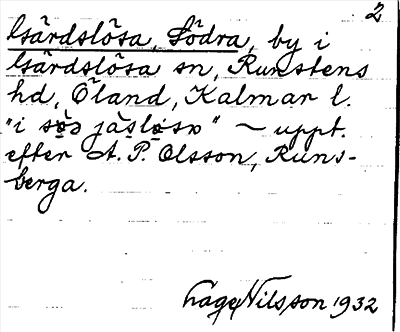 2
Gärdslösa, Södra, by i
Gärdslösa sn, Runstens
hd, Öland, Kalmar l.
"i söä jäslösa" ~ uppt.
efter A. P. Olsson, Runs-
berga.
Hage Nilsson 1932